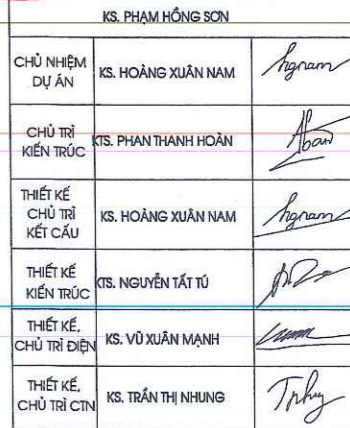 KS. PHẠM HỒNG SƠN
CHỦ NHIỆM
DỰ ÁN
KS. HOÀNG XUÂN NAM
hgnam
CHỦ TRÌ
KIẾN TRÚC
KTS. PHAN THANH HOÀN
THIẾT KẾ
CHỦ TRÌ
KẾT CẤU
KS. HOÀNG XUÂN NAM
hgnam
THIẾT KẾ
KIẾN TRÚC
KTS. NGUYỄN TẤT TÚ
THIẾT KẾ,
CHỦ TRÌ ĐIỆN
KS. VŨ XUÂN MẠNH
THIẾT KẾ,
CHỦ TRÌ CTN
KS. TRẦN THỊ NHUNG